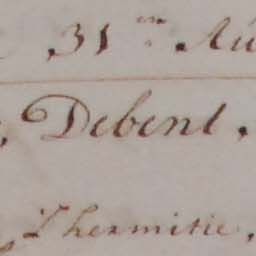 31 Au
Debent.
L'hermitie,